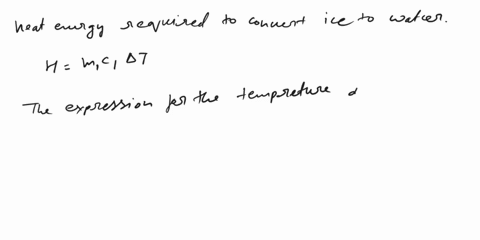 heat energy required to convert ice to water.
H = m, c, ΔT
The expression for the temperature d